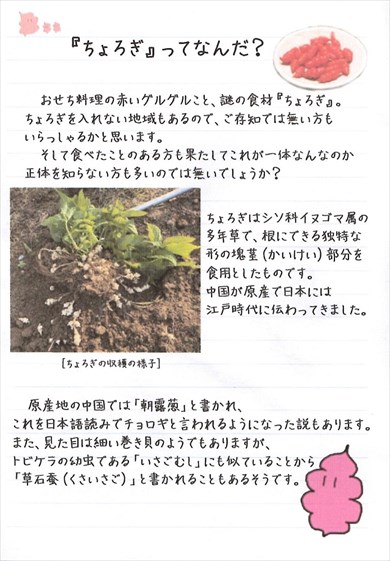 『ちょろぎ』ってなんだ?
おせち料理の赤いグルグルこと、謎の食材『ちょろぎ』。
ちょろぎを入れない地域もあるので、ご存知では無い方も
いらっしゃるかと思います。
そして食べたことのある方も果たしてこれが一体なんなのか
正体を知らない方も多いのでは無いでしょうか?
ちょろぎはシソ科イヌゴマ属の
多年草で、根にできる独特な
形の塊茎(かいけい)部分を
食用としたものです。
中国が原産で日本には
江戸時代に伝わってきました。
[ちょろぎの収穫の様子]
原産地の中国では「朝露葱」と書かれ、
これを日本語読みでチョロギと言われるようになった説もあります。
また、見た目は細い巻き貝のようでもありますが、
トビケラの幼虫である「いさごむし」にも似ていることから
「草石蚕(くさいさご)」と書かれることもあるそうです。